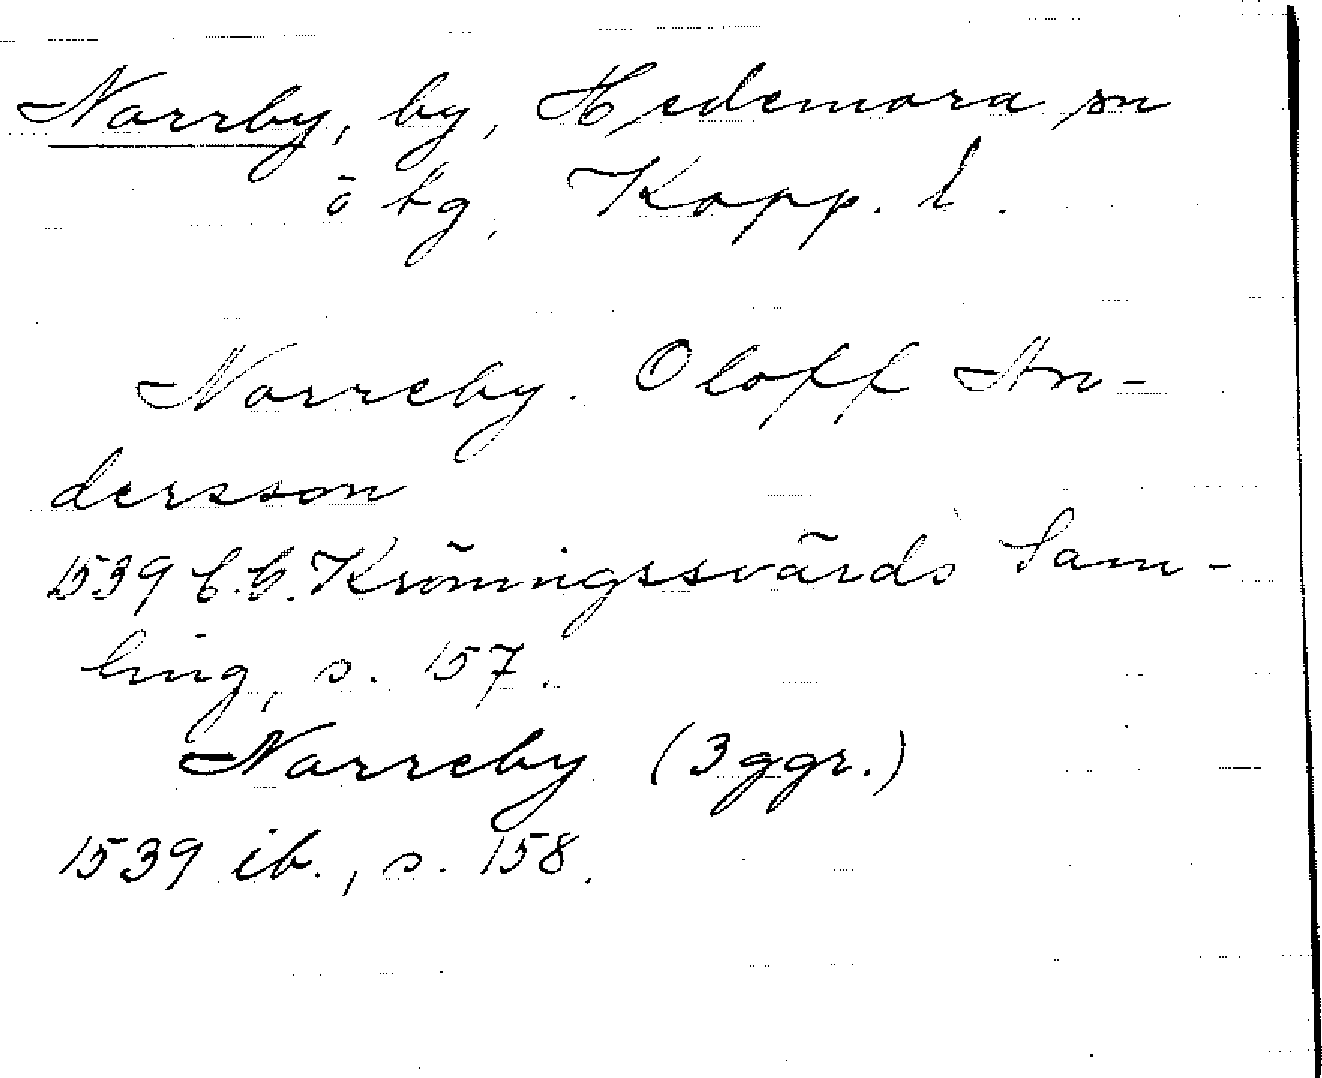 Norrby, by, Hedemora sn
ö tg, Kopp. l.
Norreby. Oloff An-
dersson
1539 C.G. Kröningssvärds Sam-
ling, s. 157.
Norreby (3 ggr.)
1539 ib., s. 158.